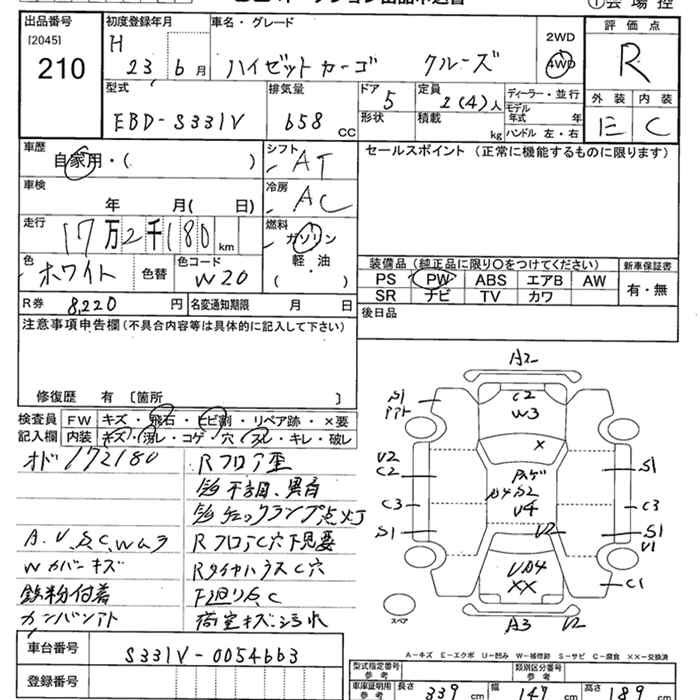 出品番号
[2045]
210
初度登録年月
H 23 6 月
車名・グレード
ハイゼットカーゴ クルーズ
2WD
4WD
評価点
R
外装 内装
E C
型式
EBD-S331V
排気量
658 CC
ドア
5
形状
定員
2(4)人
積載
kg
ディーラー・並行
モデル年式 年
ハンドル 左・右
車歴
自家用・( )
シフト
AT
車検
年 月( 日)
冷房
AC
走行
17万2千180 km
燃料
ガソリン
軽・油
( )
色
ホワイト
色替
色コード
W20
R券 8,220 円
名変通知期限 月 日
セールスポイント (正常に機能するものに限ります)
装備品 (純正品に限り○をつけてください)
新車保証書
PS PW ABS エアB AW
SR ナビ TV カワ
有・無
後日品
注意事項申告欄(不具合内容等は具体的に記入して下さい)
修復歴 有 〔箇所 〕
検査員
記入欄
FW キズ・飛石・ヒビ割・リペア跡・×要
内装 キズ・汚レ・コゲ・穴・スレ・キレ・破レ
オド172180
Rフロア歪
A.U.S.C.Wムラ
Wカバーキズ
鉄粉付着
カンバンアト
Rフロア C穴 下見要
Rタイヤハウス C穴
F廻り S C
荷室キズ汚れ
A2
C2
W3
S1
U2
C2
C3
S1
×
S2
U4
U2
××
S1
C3
S1
U1
C1
A3
U2
スペア
A－キズ E－エクボ U－凹み W－補修跡 S－サビ C－腐食 ××－交換済
車台番号
S331V-0054663
登録番号
型式指定番号
参考
類別区分番号
参考
車庫証明用
参考
長さ 339 cm
幅 147 cm
高さ 189 cm